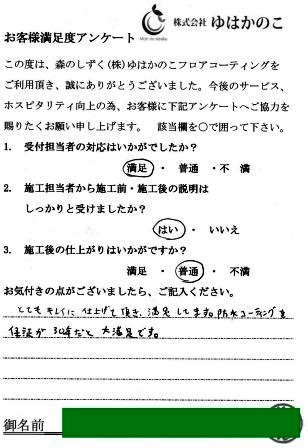 株式会社 ゆはかのこ
お客様満足度アンケート
この度は、森のしずく(株)ゆはかのこフロアコーティングを
ご利用頂き、誠にありがとうございました。今後のサービス、
ホスピタリティ向上の為、お客様に下記アンケートへご協力を
賜りたくお願い申し上げます。 該当欄を○で囲って下さい。
1. 受付担当者の対応はいかがでしたか?
満足 ・ 普通 ・ 不満
2. 施工担当者から施工前・施工後の説明は
しっかりと受けましたか?
はい ・ いいえ
3. 施工後の仕上がりはいかがですか?
満足 ・ 普通 ・ 不満
お気付きの点がございましたら、ご記入ください。
とてもキレイに仕上げて頂き、満足してます。防水コーティングを
保証が30年だと大満足です。
御名前